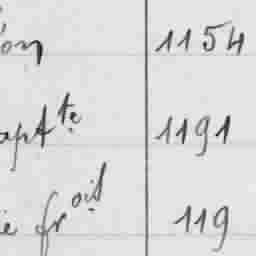 on 1154
aptte 1191
ie froit 119